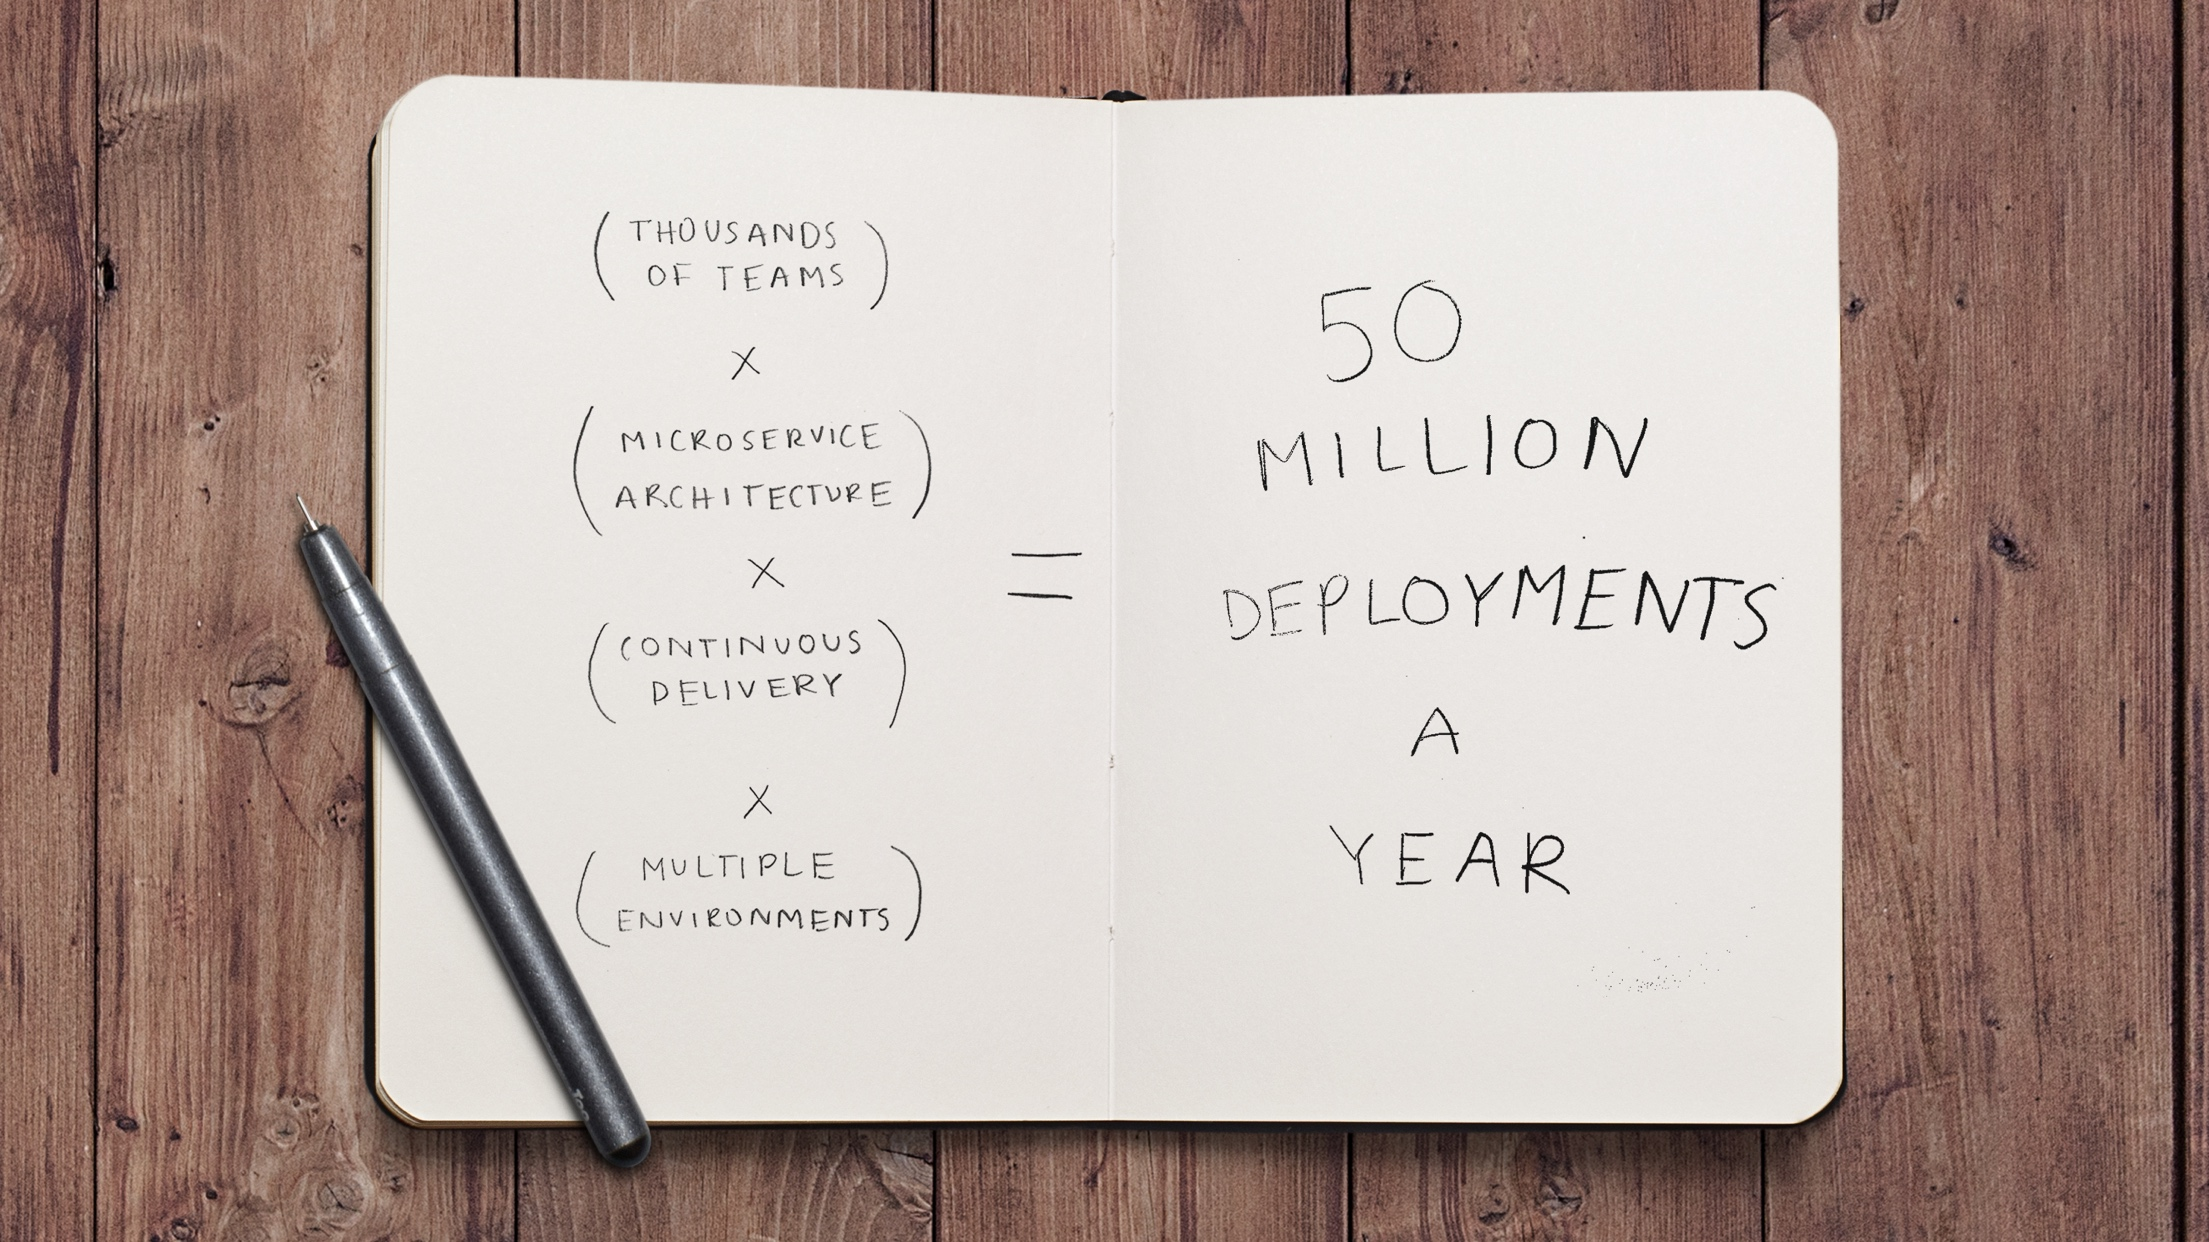 (THOUSANDS
OF TEAMS)
X
(MICROSERVICE
ARCHITECTURE)
X
(CONTINUOUS
DELIVERY)
X
(MULTIPLE
ENVIRONMENTS)
=
50
MILLION
DEPLOYMENTS
A
YEAR